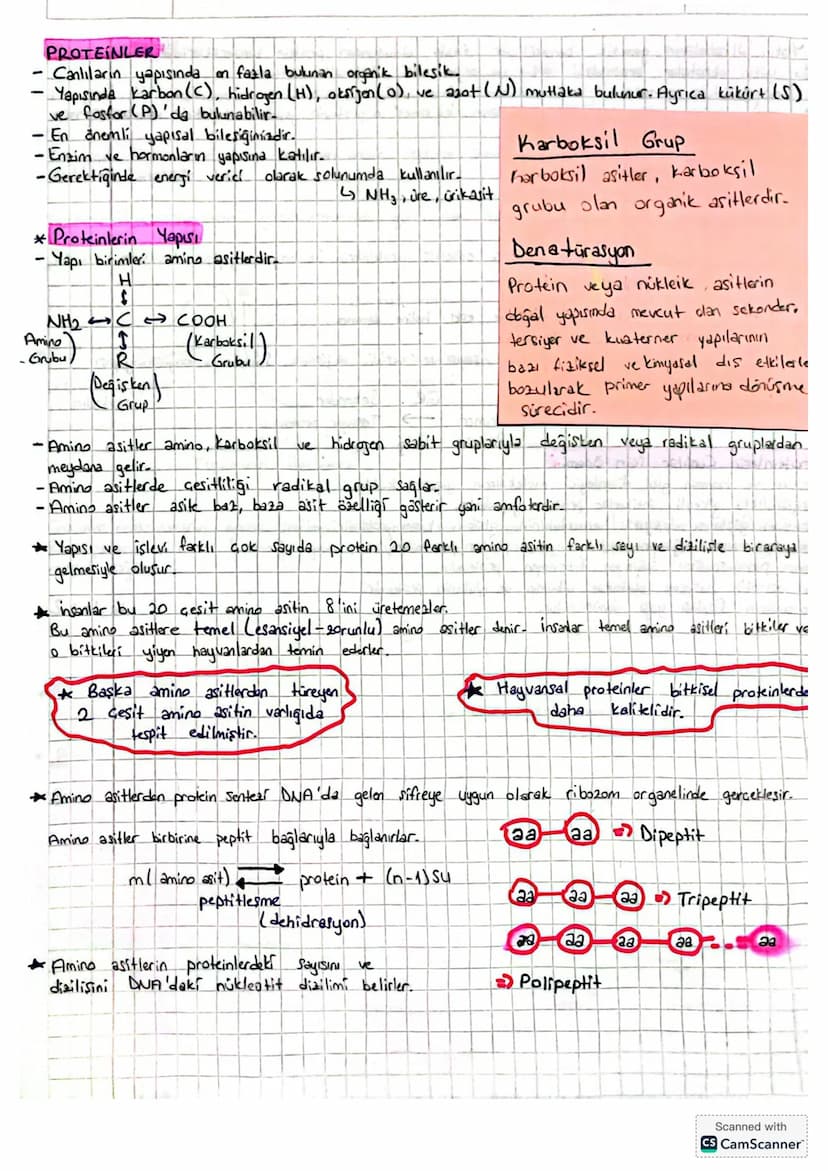 PROTEİNLER
- Canlıların yapısında en fazla bulunan organik bileşik.
- Yapısında karbon(C), hidrojen(H), oksijen(O), ve azot(N) mutlaka bulunur. Ayrıca kükürt(S)
ve fosfor(P)'da bulunabilir.
- En önemli yapısal bileşiğimizdir.
- Enzim ve hormonların yapısına katılır.
- Gerektiğinde energi verici olarak solunumda kullanılır.
↳ NH3, üre, ürikasit
Karboksil Grup
karboksil asitler, karboksil
grubu olan organik asitlerdir.
Denatürasyon
Protein veya nükleik asitlerin
doğal yapısında mevcut olan sekonder,
tersiyer ve kuaterner yapılarının
bazı fiziksel ve kimyasal dış etkilerle
bozularak primer yapılarına dönüşme
sürecidir.
* Proteinlerin Yapısı
- Yapı birimleri amino asitlerdir.
H
↕
NH2 ↔ C ↔ COOH
(Amino Grubu) ↕ (Karboksil Grubu)
R
(Değişken Grup)
- Amino asitler amino, karboksil ve hidrogen sabit gruplarıyla değişken veya radikal gruplardan
meydana gelir.
- Amino asitlerde çeşitliliği radikal grup sağlar.
- Amino asitler asite baz, baza asit özelliği gösterir yani amfoterdir.
★ Yapısı ve işlevi farklı çok sayıda protein 20 farklı amino asitin farklı sayı ve dizilişte biraraya
gelmesiyle oluşur.
★ İnsanlar bu 20 çeşit amino asitin 8'ini üretemezler.
Bu amino asitlere temel (esansiyel-zorunlu) amino asitler denir. İnsanlar temel amino asitleri bitkiler ve
o bitkileri yiyen hayvanlardan temin ederler.
★ Başka amino asitlerden türeyen
2 çeşit amino asitin varlığıda
tespit edilmiştir.
★ Hayvansal proteinler bitkisel proteinlerde
daha kalitelidir.
★ Amino asitlerden protein sentezi DNA'da gelen şifreye uygun olarak ribozom organelinde gerçekleşir.
Amino asitler birbirine peptit bağlarıyla bağlanırlar.
aa aa ⇒ Dipeptit
m(amino asit) ⇄ protein + (n-1)Su
peptitleşme
(dehidrasyon)
aa aa aa ⇒ Tripeptit
aa aa aa aa ... aa
⇒ Polipeptit
★ Amino asitlerin proteinlerdeki sayısını ve
dizilişini DNA'daki nükleotit dizilimi belirler.
Scanned with
CS CamScanner